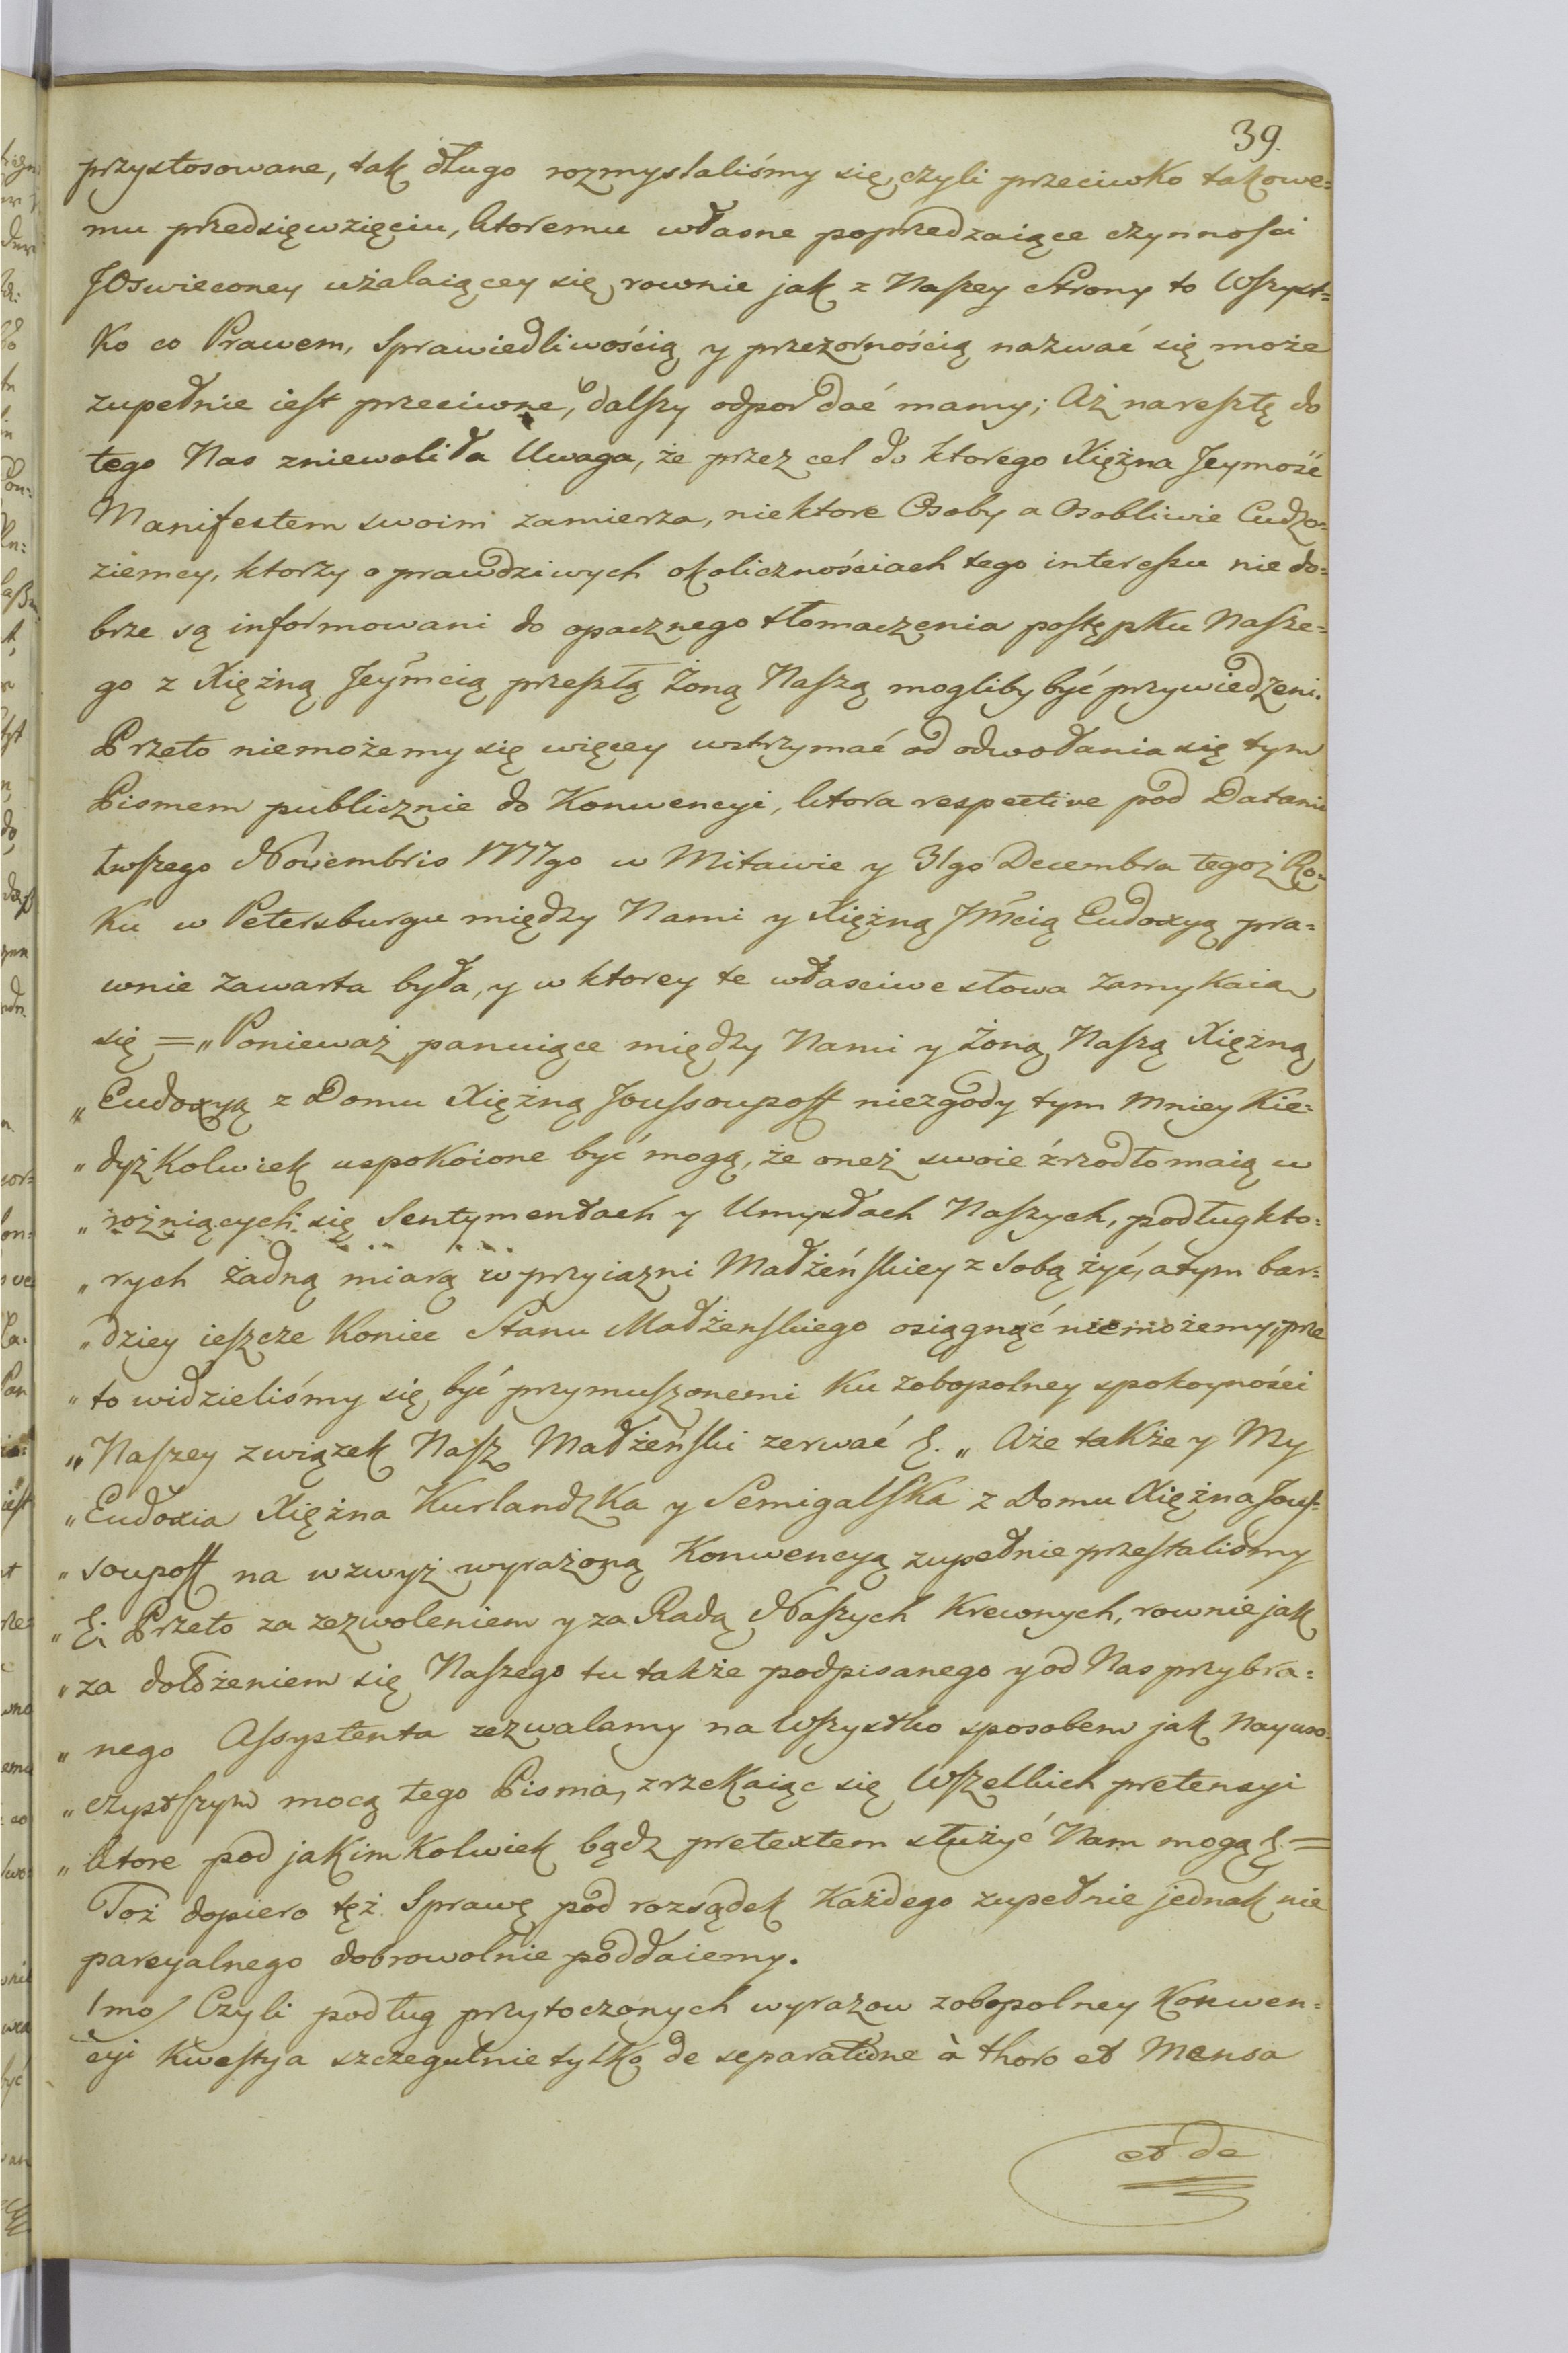 39.
przystosowane, tak długo rozmyslaliśmy się, czyli przeciwko takowe=
mu przedsięwzięciu, ktoremu własne poprzedzaiące czynnosci
JOswieconey użalaiącey się, rownie jak z Naszey Strony to Wszyst=
ko co Prawem, Sprawiedliwością y przezornością nazwać się może
zupełnie iest przeciwne, dalszy odpor dać mamy; Aż naresztę do
tego Nas zniewoliła Uwaga, że przez cel do ktorego Xiężna Jeymość
Manifestem swoim zamierza, niektore Osoby a Osobliwie Cudzo=
ziemcy, ktorzy o prawdziwych okolicznościach tego interessu nie do=
brze są informowani do opacznego tłomaczenia postępku Nasze=
go z Xiężną Jeymcią przeszłą Żoną Naszą mogliby być przywiedzeni.
Przeto niemożemy się więcey wstrzymać od odwołania się tym
Pismem publicznie do Konwencyi, ktora respective pod Datami
Novembris 1777go w Mitawie y 31go Decembra tegoż Ro=
ku w Petersburgu między Nami y Xiężną Jmcią Eudoxyą pra=
wnie zawarta była, y w ktorey te własciwe słowa zamykaią
się = „Ponieważ panuiące między Nami y Żoną Naszą Xiężną
„Eudoxyą z Domu Xiężną Joussoupoff niezgody tym mniey kie=
„dyżkolwiek uspokoione być mogą, że oneż swoie źrzodło maią w
„rożniących się Sentymentach y Umysłach Naszych, podług kto=
„rych żadną miarą w przyiazni Małżeńskiey z sobą żyć, a tym bar=
„dziey ieszcze koniec Stanu Małżenskiego osiągnąć niemożemy, prze
„to widzieliśmy się być przymuszonemi ku zobopolney spokoyności
„Naszey związek Nasz Małżeński zerwać &. „ Aże także y My
„Eudoxia Xiężna Kurlandzka y Semigalska z Domu Xiężna Jous=
„soupoff na wzwyż wyrażoną Konwencyą zupełnie przestalismy
„&; Przeto za zezwoleniem y za Radą Naszych Krewnych, rownie jak
„za dołożeniem się Naszego tu także podpisanego y od Nas przybra=
„nego Assystenta zezwalamy na Wszystko sposobem jak Nayuro=
„czystszym mocą tego Pisma, zrzekaiąc się Wszelkich pretensyi
„ktore pod jakimkolwiek bądz pretextem służyć Nam mogą &=
Toż dopiero tęż Sprawę pod rozsądek Każdego zupełnie jednak nie
parcyalnego dobrowolnie poddaiemy.
1mo/ Czyli podług przytoczonych wyrazow zobopolney Konwen=
cyi Kwestya szczegulnie tylko de separatione à thoro et Mensa
et de